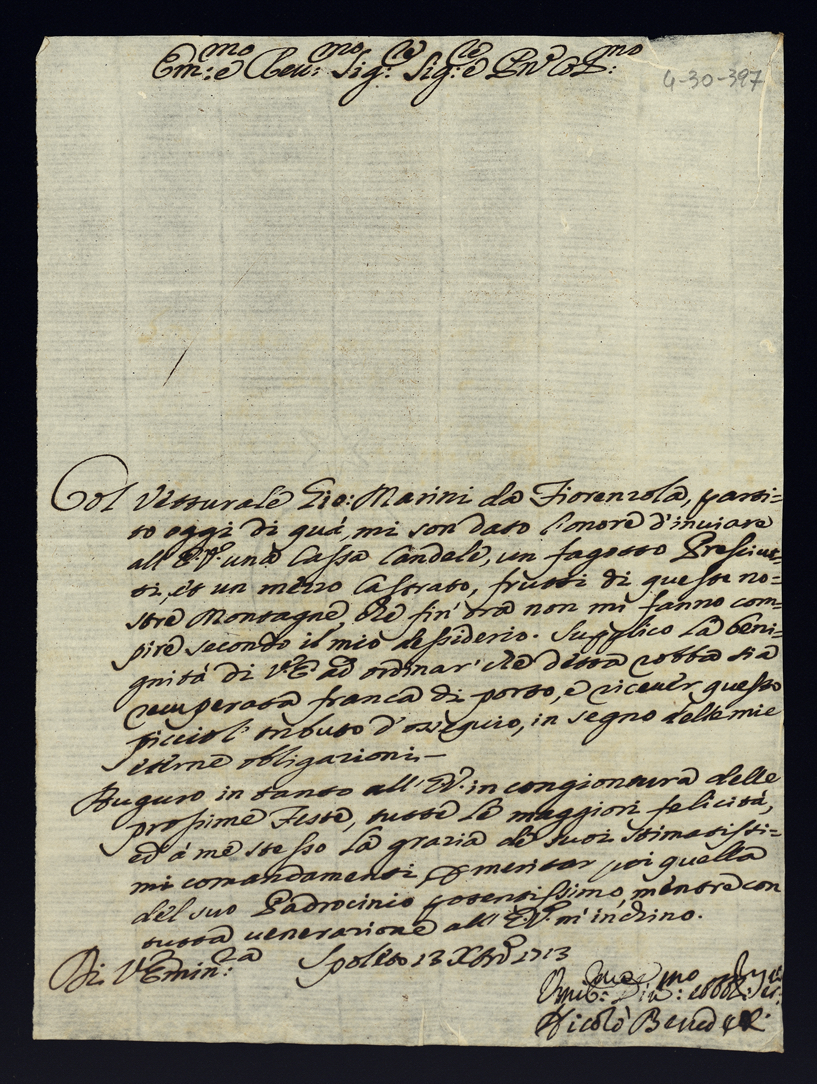 Em:mo e Reu:mo Sig.re Sig.re e Pn' Col:mo
4-30-397
Col Vetturale Gio: Marini da Fiorenzola, parti=
to oggi di quà, mi son dato l'onore d'inuiare
all' E.V. una Cassa Candele, un fagotto Presciut=
ti, et un mezzo Castrato, frutti di queste no=
stre Montagne, che fin' ora non mi fanno com=
pire secondo il mio dessiderio. Supplico la beni=
gnità di V.E. ad ordinar' che detta robba sia
recuperata franca di porto, e riceuer questo
picciol' tributo d'ossequio, in segno delle mie
eterne obligazioni,—
Auguro in tanto all' E.V. in congiontura delle
prossime Feste, tutte le maggiori felicità,
ed à me stesso la grazia de suoi stimatissi=
mi comandamenti, p meritar poi quella
del suo Padrocinio potentissimo, mentre con
tutta uenerazione all' E.V. m'inchino.
Di V. Emin:za Spoleto 13 Xbre 1713
Vmil:mo Diu:mo
Nicolò Bened